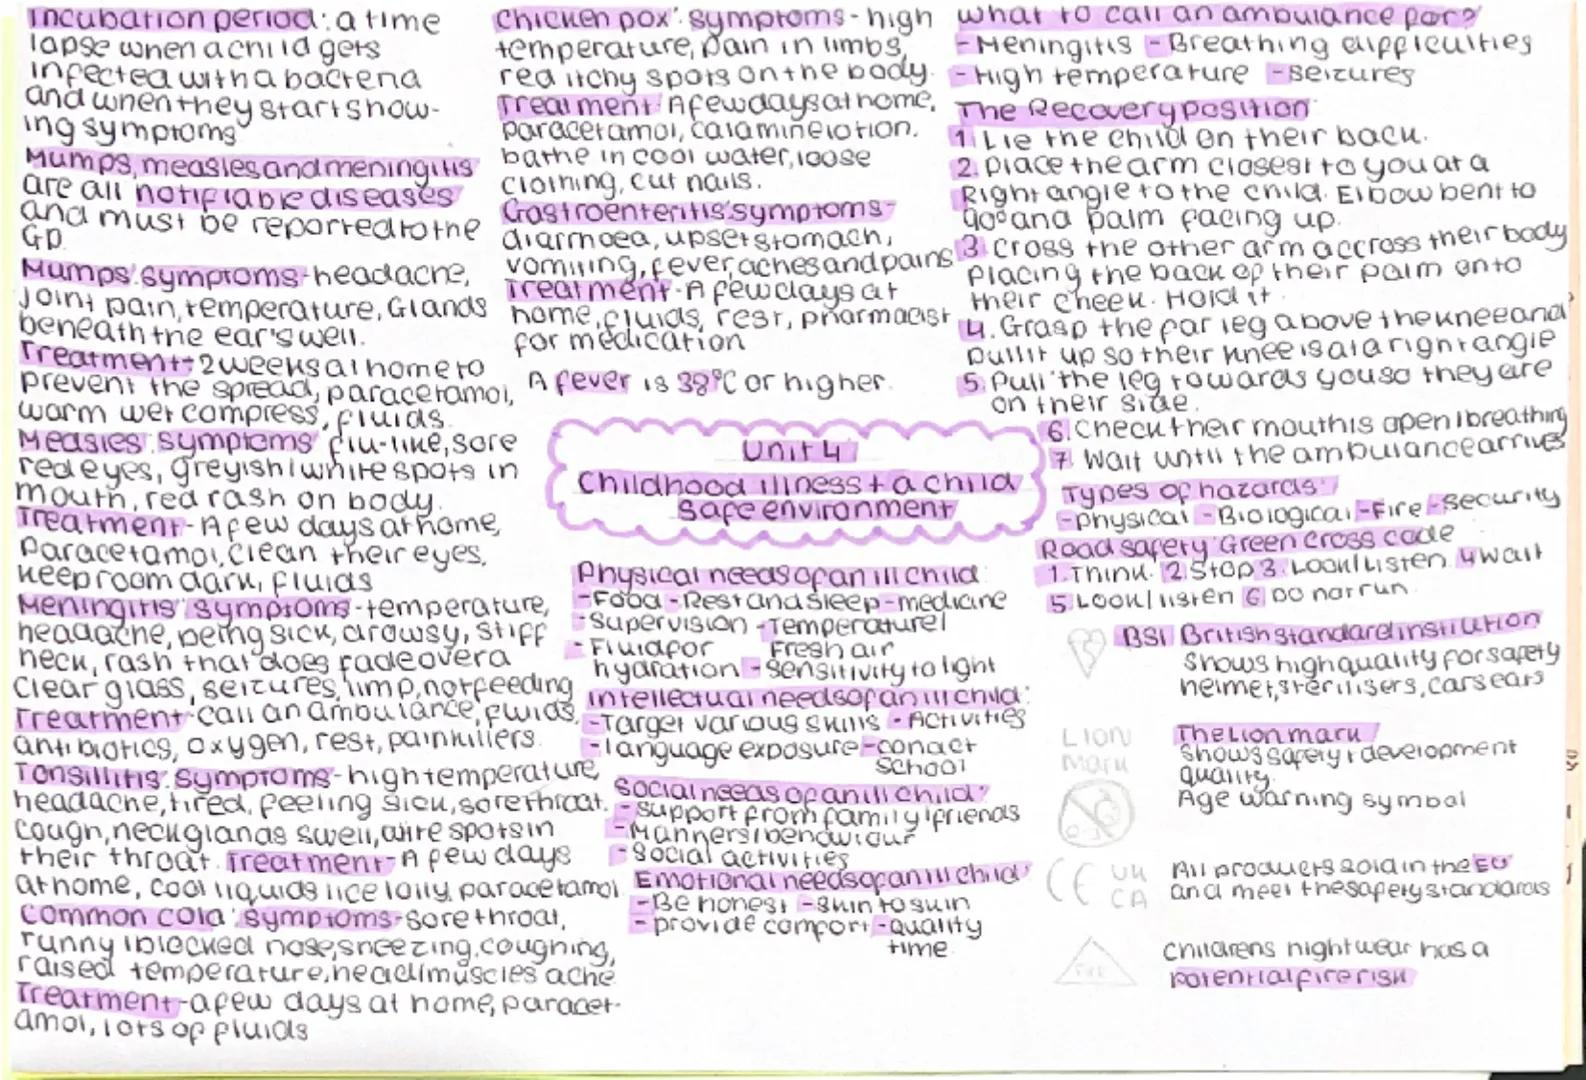 Incubation period: a time
lapse when a child gets
infected with a bacteria
and when they start show-
ing symptoms
Mumps, measles and meningitis
are all notifiable diseases
and must be reported to the
GP.
Mumps: symptoms - headache,
joint pain, temperature, Glands
beneath the ear swell.
Treatment - 2 weeks at home to
prevent the spread, paracetamol,
warm wet compress, fluids.
Measles: symptoms flu-like, sore
red eyes, greyish/white spots in
mouth, red rash on body.
Treatment - A few days at home,
Paracetamol, clean their eyes,
keep room dark, fluids
Meningitis: symptoms - temperature,
headache, being sick, drowsy, stiff
neck, rash that does fade over a
clear glass, seizures, limp, not feeding
Treatment - call an ambulance, fluids,
antibiotics, oxygen, rest, painkillers.
Tonsillitis: symptoms - high temperature,
headache, tired, feeling sick, sore throat,
cough, neck glands swell, white spots in
their throat. Treatment - A few days
at home, cool liquids, ice lolly, paracetamol
Common cold: symptoms - sore throat,
runny/blocked nose, sneezing, coughing,
raised temperature, head/muscles ache
Treatment - a few days at home, paracet-
amol, lots of fluids
Chicken pox: symptoms - high
temperature, pain in limbs,
red itchy spots on the body.
Treatment: A few days at home,
paracetamol, calamine lotion.
bathe in cool water, loose
clothing, cut nails.
Gastroenteritis: symptoms -
diarrhoea, upset stomach,
vomiting, fever, aches and pains
Treatment - A few days at
home, fluids, rest, pharmacist
for medication
A fever is 38°C or higher.
Unit 4
Childhood illness + a child
safe environment
Physical needs of an ill child:
- Food - Rest and sleep - medicine
- Supervision - Temperature/
- Fluid for Fresh air
hydration - sensitivity to light
Intellectual needs of an ill child:
- Target various skills - Activities
- language exposure - conact
school
Social needs of an ill child:
- support from family/friends
- Manners/behaviour
- Social activities
Emotional needs of an ill child:
- Be honest - skin to skin
- provide comfort - quality
time
What to call an ambulance for?
- Meningitis - Breathing difficulties
- High temperature - seizures
The Recovery position
1. Lie the child on their back.
2. place the arm closest to you at a
Right angle to the child. Elbow bent to
90° and palm facing up.
3. Cross the other arm accross their body
placing the back of their palm onto
their cheek. Hold it.
4. Grasp the far leg above the knee and
pull it up so their knee is at a right angle
5. Pull the leg towards you so they are
on their side.
6. Check their mouth is open/breathing
7. Wait until the ambulance arrives
Types of hazards:
- physical - Biological - Fire - security
Road safety Green cross code
1. Think. 2. Stop 3. Look/Listen. 4 Wait
5 Look/listen 6 Do not run.
BSI British standard instiution
Shows high quality for safety
helmet, sterilisers, carsears
LION
Mark
The lion mark
Shows safety + development
quality.
Age warning symbol
0-3
CE UK
CA
All products sold in the EU
and meet the safety standards
Childrens nightwear has a
potential fire risk